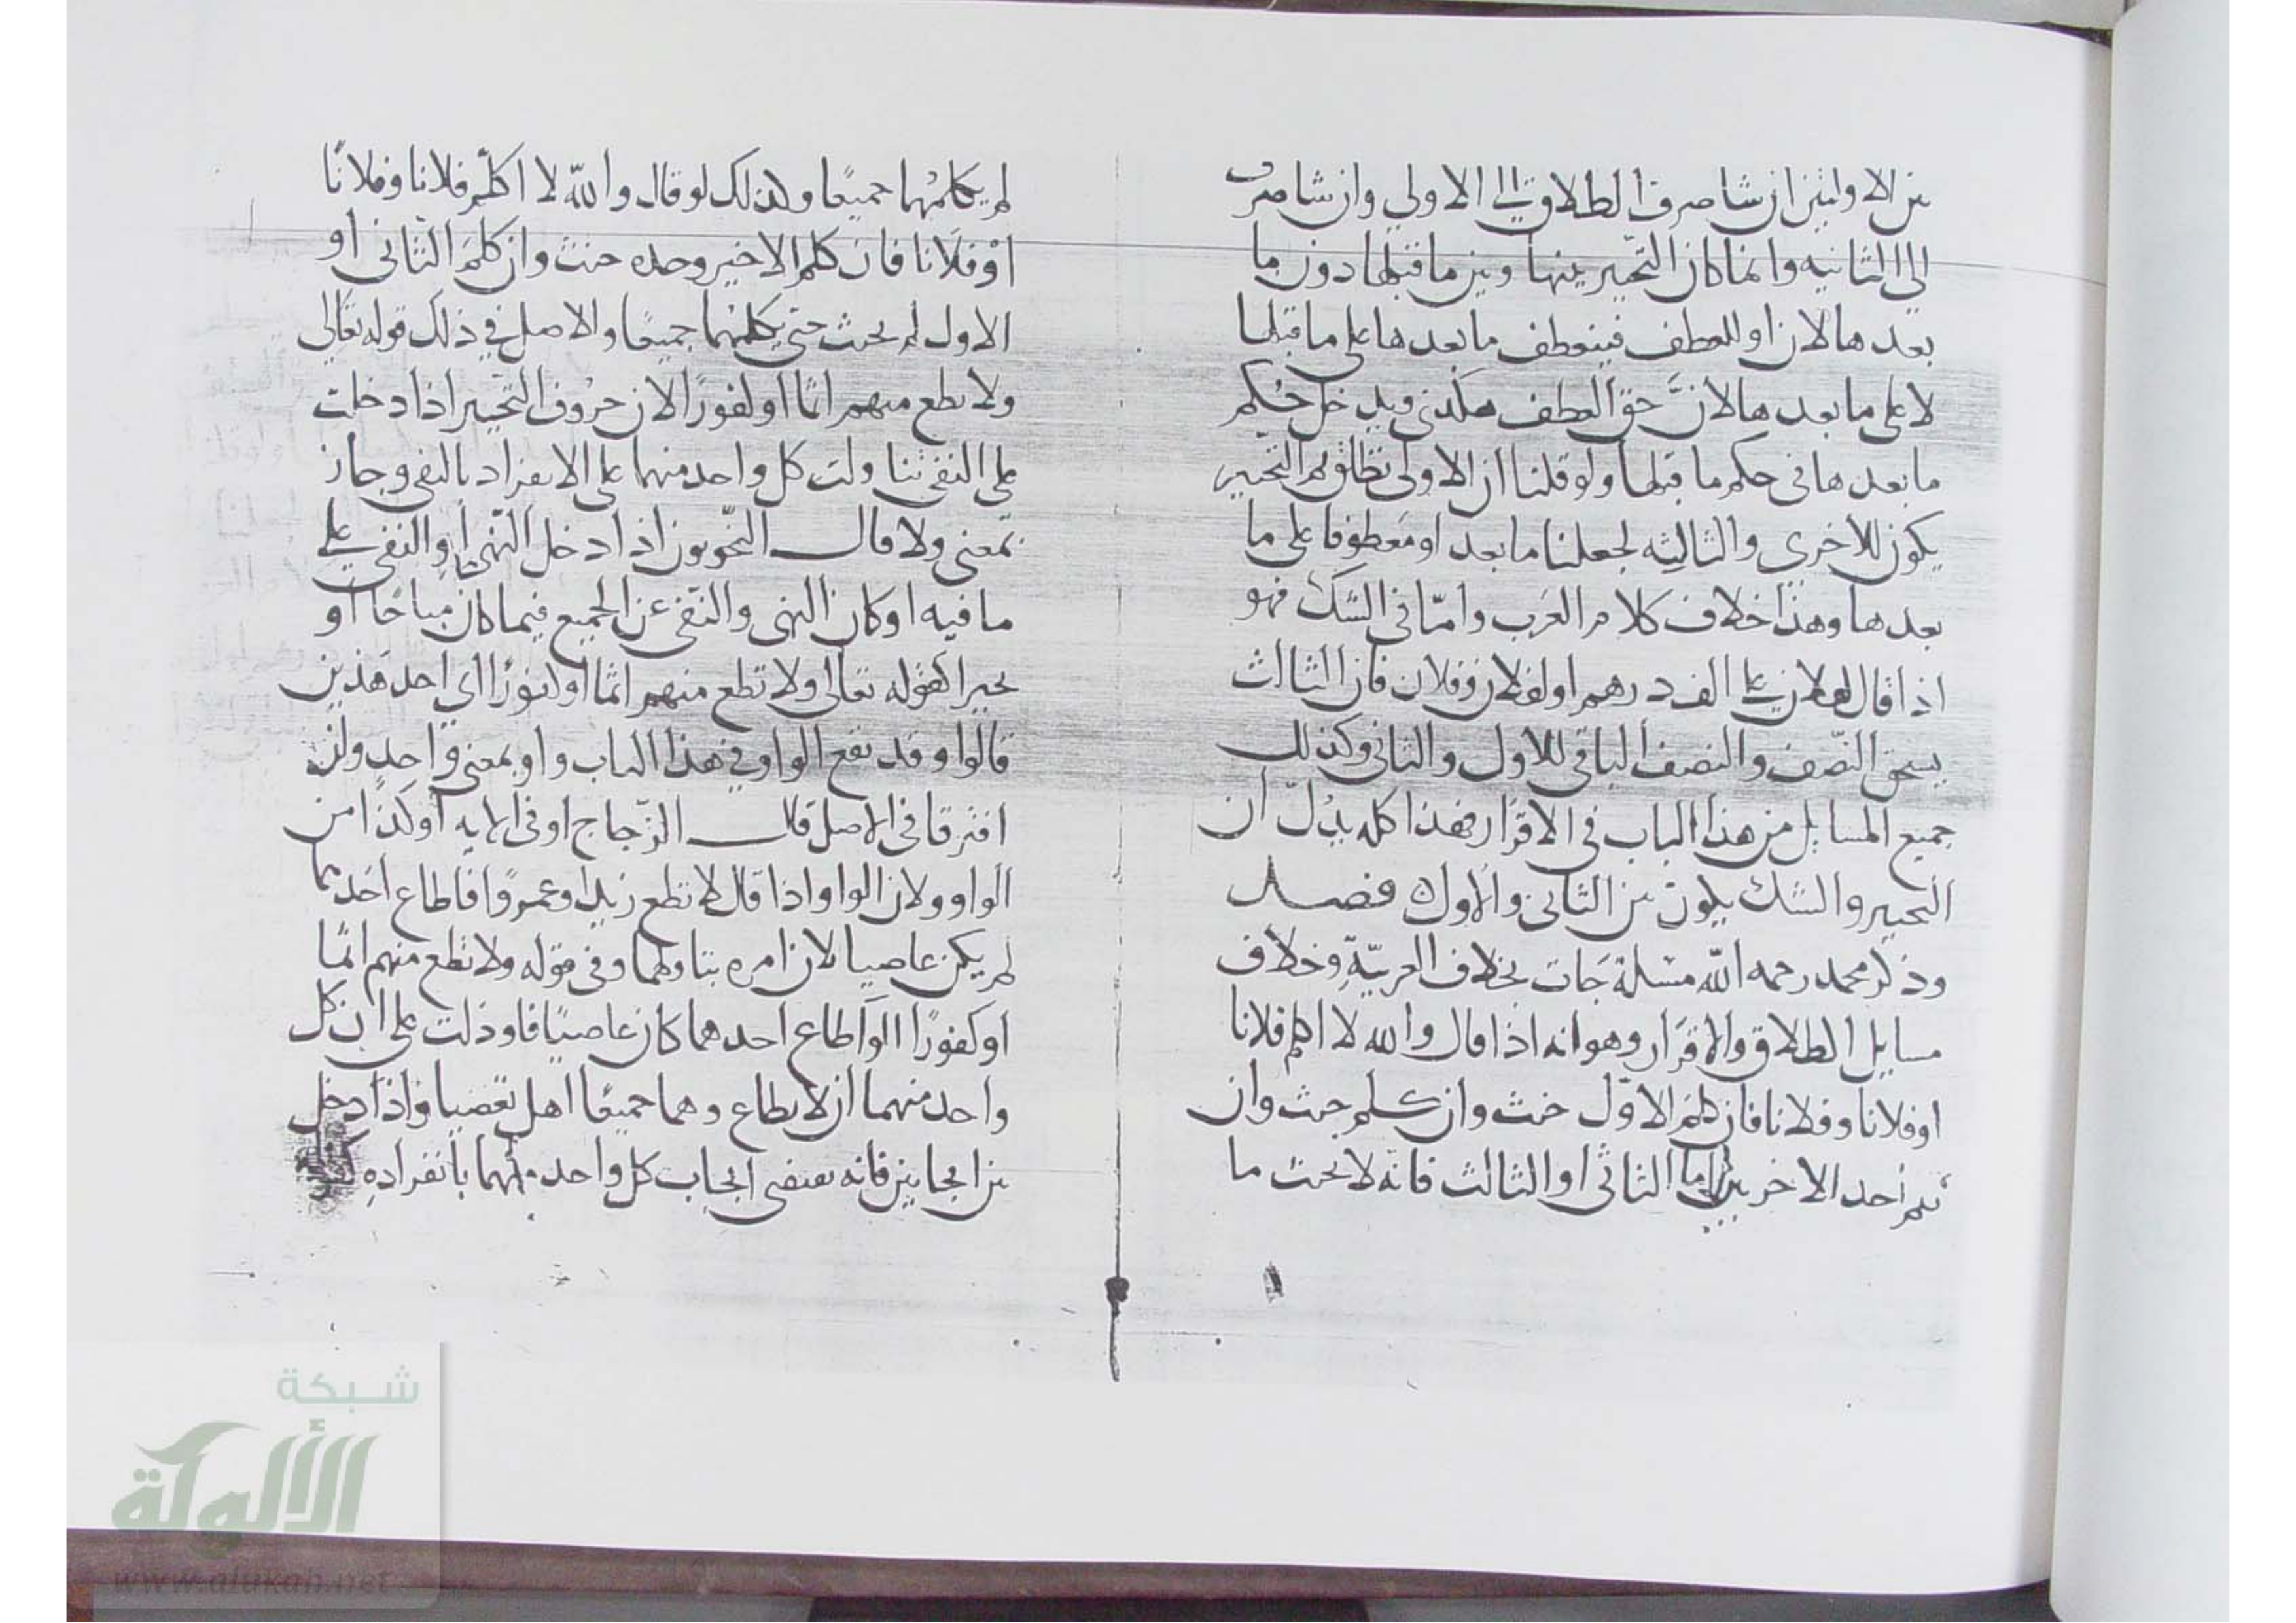 بين الاولتين ان شا صرف الطلاق الى الاولى وان شا صرف
الى الثانيه وانما كان التخيير بينها وبين ما قبلها دون ما
بعدها لان او للعطف فينعطف ما بعدها على ما قبلها
لا على ما بعدها لانَّ حق العطف هكذى ويدخل حُكم
ما بعدها فى حكم ما قبلها ولو قلنا ان الاولى تطلق ثم التخيير
يكون للاخرى والثالثه لجعلنا ما بعد او معطوفا على ما
بعدها وهذا خلاف كلام العرب وامّا فى الشك فهو
اذا قال لفلان على الف درهم او لفلان وفلان فان الثالث
يستحق النّصف والنصف الباقى للاول والثانى وكذلك
جميع المسايل من هذا الباب فى الاقرار فهذا كله يدُلّ ان
التخيير والشك يكون بين الثانى والاول فصل
وذكر محمد رحمه الله مسئلة جات بخلاف العربيّة وخلاف
مسايل الطلاق والاقرار وهو انه اذا قال والله لا اكلم فلانا
او فلانا وفلانا فان كلم الاوّل حنث وان كلم حنث وان
كلم احد الاخرين اما الثانى او الثالث فانّه لا يحنث ما
لم يكلمهما جميعًا وكذلك لو قال والله لا اكلّم فلانا وفلانًا
اوْ فلانا فان كلم الاخير وحده حنث وان كلمَ الثانى او
الاول لم يحنث حتى يكلمهما جميعًا والاصل فى ذلك قوله تعالى
ولا تطع منهم اثمًا او كفورًا لان حروف التخيير اذا دخلت
على النفى تناولت كل واحد منهما على الانفراد بالنفى وجاز
بمعنى ولا قال النحّويون اذا دخل النّهى او النفى على
ما فيه او كان النهى والنّفى عن الجميع فيما كان مباحًا او
تخييرا كقوله تعالى ولا تطع منهم اثمًا او كفورًا اى احد هذين
قالوا وقد تقع الواو فى هذا الباب واو بمعنى واحد وان
افترقا فى الاصل قال الزّجاج او فى الايه اوكد من
الواو ولان الواو اذا قال لا تطع زيدا وعمروًا فاطاع احدهما
لم يكن عاصيا لان امره يتناولهما وفى قوله ولا تطع منهم اثمًا
او كفورًا لو اطاع احدهما كان عاصيًا فاو دلت على ان كل
واحد منهما ان لا يطاع وهما جميعًا اهل تعصيا واذا دخل
بين ايجابين فانه يقتضى ايجاب كل واحد منهما بانفرادهِ
شبكة
الألوكة
www.alukah.net